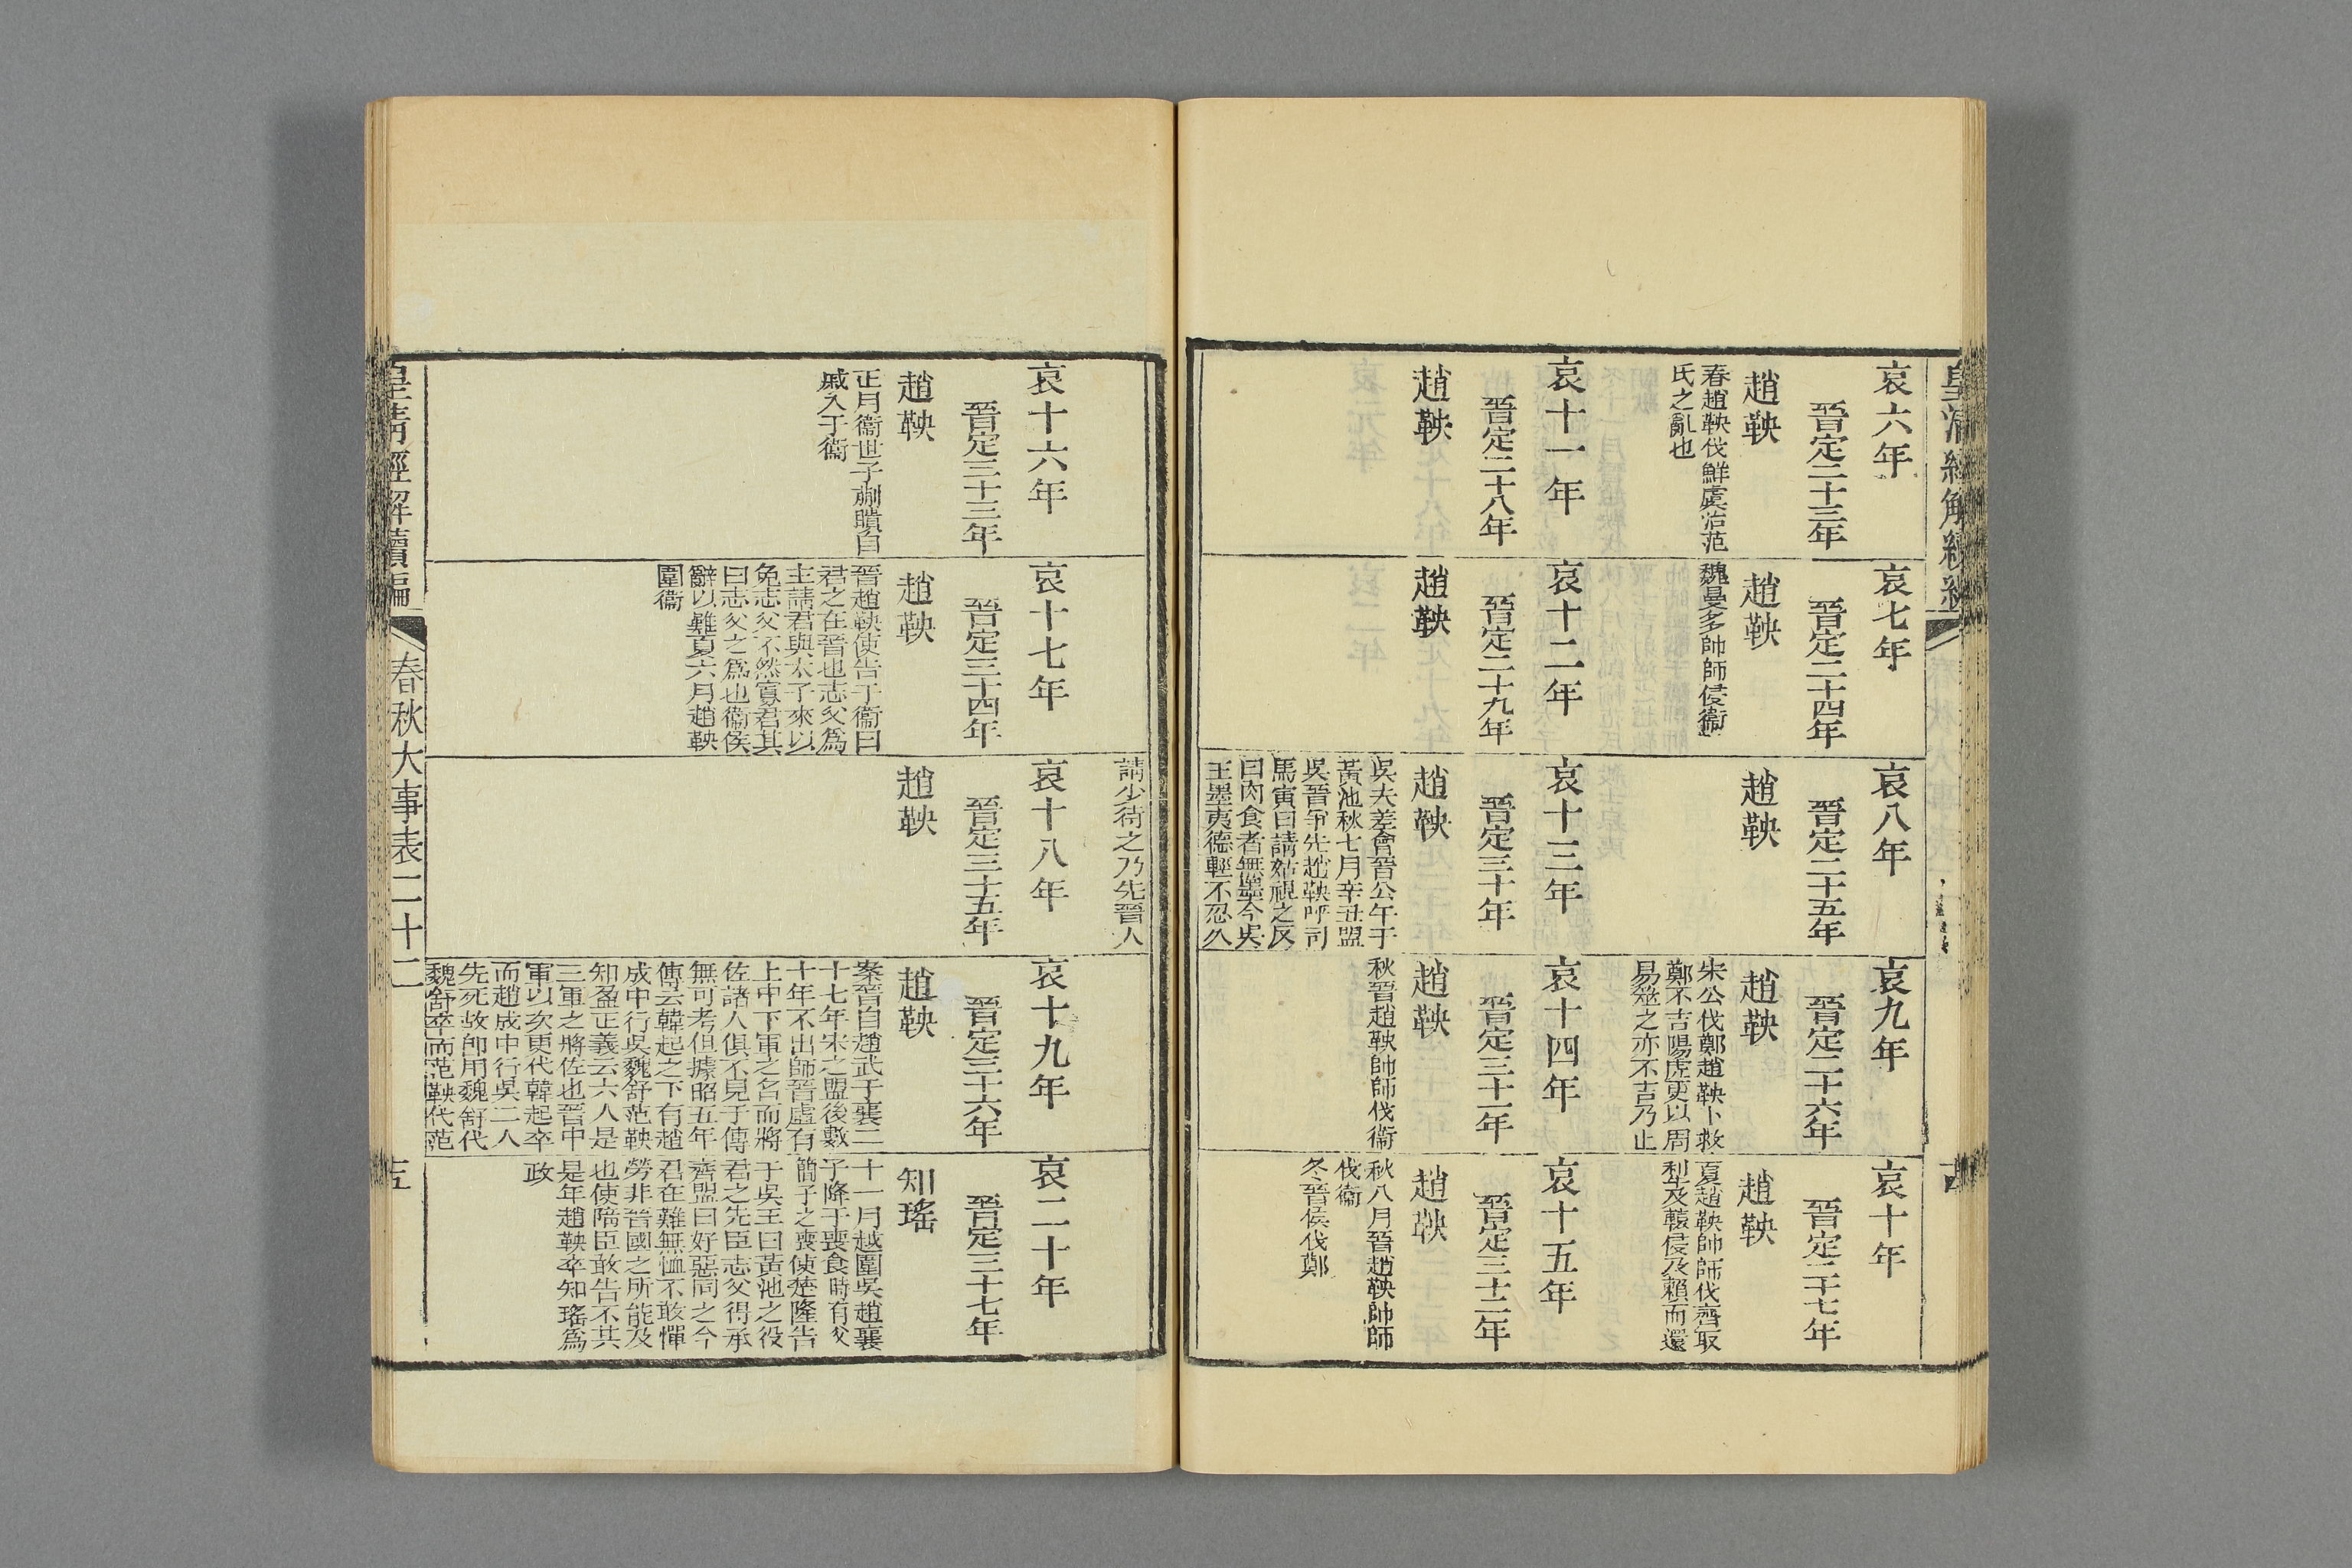 皇清經解續編
哀六年
晉定二十三年
趙鞅
春趙鞅伐鮮虞治范
氏之亂也
哀七年
晉定二十四年
趙鞅
魏曼多帥師侵衞
哀八年
晉定二十五年
趙鞅
哀九年
晉定二十六年
趙鞅
宋公伐鄭趙鞅卜救
鄭不吉陽虎更以周
易筮之亦不吉乃止
哀十年
晉定二十七年
趙鞅
夏趙鞅帥師伐齊取
犁及轅侵及賴而還
哀十一年
晉定二十八年
趙鞅
哀十二年
晉定二十九年
趙鞅
哀十三年
晉定三十年
趙鞅
吳夫差會晉公午于
黃池秋七月辛丑盟
吳晉爭先趙鞅呼司
馬寅曰請姑視之反
曰肉食者無墨今吳
王墨夷德輕不忍久
哀十四年
晉定三十一年
趙鞅
秋晉趙鞅帥師伐衞
哀十五年
晉定三十二年
趙鞅
秋八月晉趙鞅帥師
伐衞
冬晉侯伐鄭
請少待之乃先晉人
哀十六年
晉定三十三年
趙鞅
正月衞世子蒯聵自
戚入于衞
哀十七年
晉定三十四年
趙鞅
晉趙鞅使告于衞曰
君之在晉也志父爲
主請君與太子來以
免志父不然寡君其
曰志父之爲也衞侯
辭以難夏六月趙鞅
圍衞
哀十八年
晉定三十五年
趙鞅
哀十九年
晉定三十六年
趙鞅
案晉自趙武于襄二
十七年宋之盟後數
十年不出師晉虛有
上中下軍之名而將
佐諸人俱不見于傳
無可考但據昭五年
傳云韓起之下有趙
成中行吳魏舒范鞅
知盈正義云六人是
三軍之將佐也晉中
軍以次更代韓起卒
而趙成中行吳二人
先死故卽用魏舒代
魏舒卒而范鞅代范
哀二十年
晉定三十七年
知瑤
十一月越圍吳趙襄
子降于喪食時有父
簡子之喪使楚隆告
于吳王曰黃池之役
君之先臣志父得承
齊盟曰好惡同之今
君在難無恤不敢憚
勞非晉國之所能及
也使陪臣敢告不共
是年趙鞅卒知瑤爲
政
皇清經解續編
春秋大事表二十二